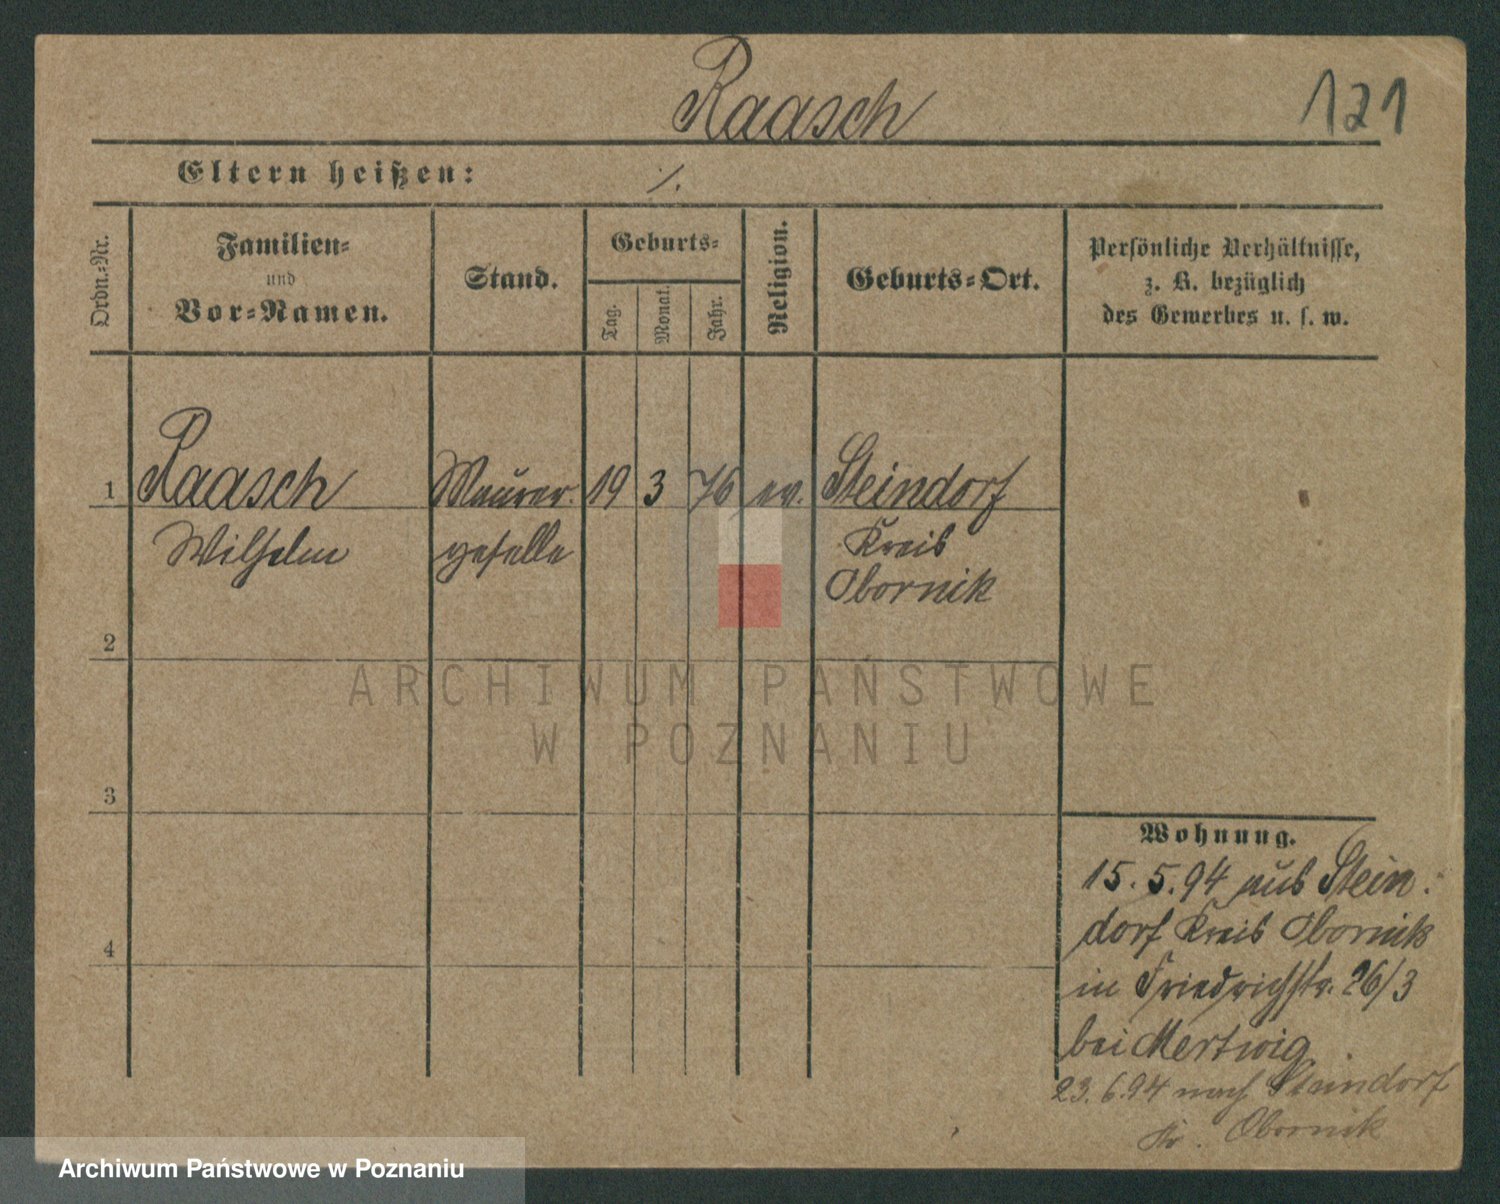 Raasch
121
Eltern heißen: ./.
Ordn.-Nr.
Familien-
und
Vor-Namen.
Stand.
Geburts-
Tag.
Monat.
Jahr.
Religion.
Geburts-Ort.
Persönliche Verhältnisse,
z. B. bezüglich
des Gewerbes u. s. w.
1 Raasch Maurer. 19 3 76 ev. Steindorf
Wilhelm geselle Kreis
Obornik
2
3
4
Wohnung.
15.5.94 aus Stein.
dorf Kreis Obornik
in Friedrichstr. 26/3
bei Mertwig
23.6.94 nach Steindorf
Kr. Obornik
ARCHIWUM PAŃSTWOWE
W POZNANIU
Archiwum Państwowe w Poznaniu